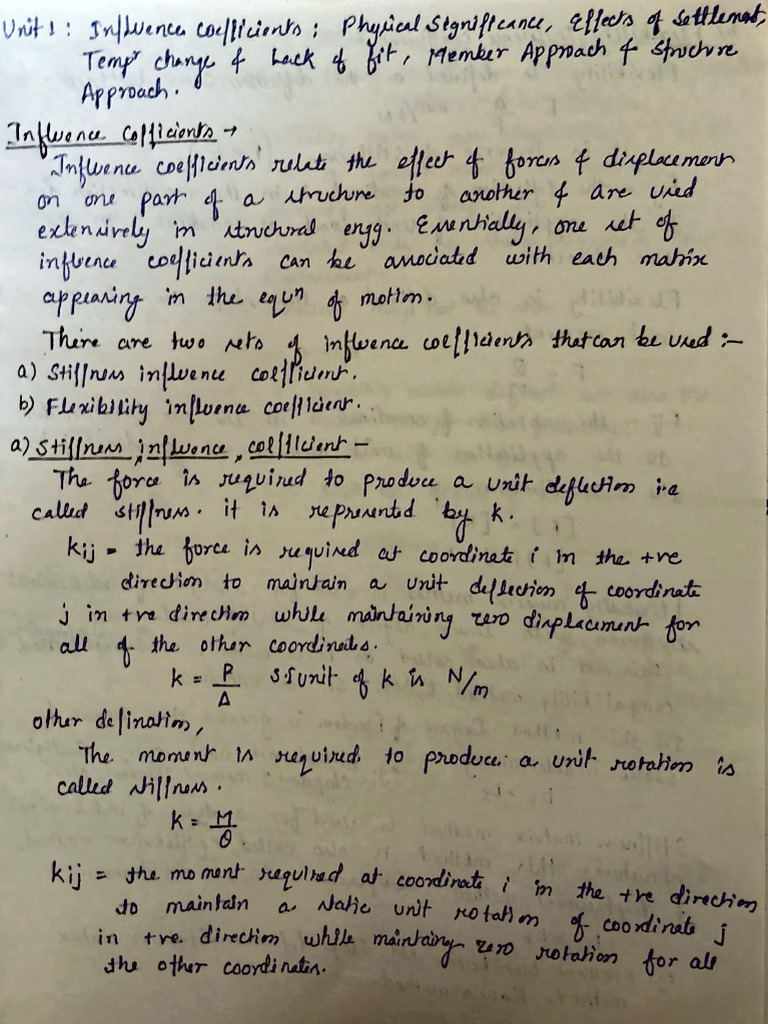 Unit 1 : Influence coefficients ; Physical Significance, Effects of Settlement,
Tempr change & Lack of fit, Member Approach & Structure
Approach.
Influence Cofficients →
Influence coefficients relate the effect of forces & displacement
on one part of a structure to another & are used
extensively in structural engg. Essentially, one set of
influence coefficients can be associated with each matrix
appearing in the equn of motion.
There are two sets of influence coefficients that can be used :-
a) Stiffness influence coefficient.
b) Flexibility influence coefficient.
a) Stiffness influence coefficient -
The force is required to produce a unit deflection i.e
called stiffness. it is represented by k.
kij = the force is required at coordinate i in the +ve
direction to maintain a unit deflection of coordinate
j in +ve direction while maintaining zero displacement for
all of the other coordinates.
k = P/Δ S.I unit of k is N/m
other defination,
The moment is required to produce a unit rotation is
called stiffness.
k = M/θ.
kij = the moment required at coordinate i in the +ve direction
to maintain a static unit rotation of coordinate j
in +ve direction while maintaing zero rotation for all
the other coordinates.